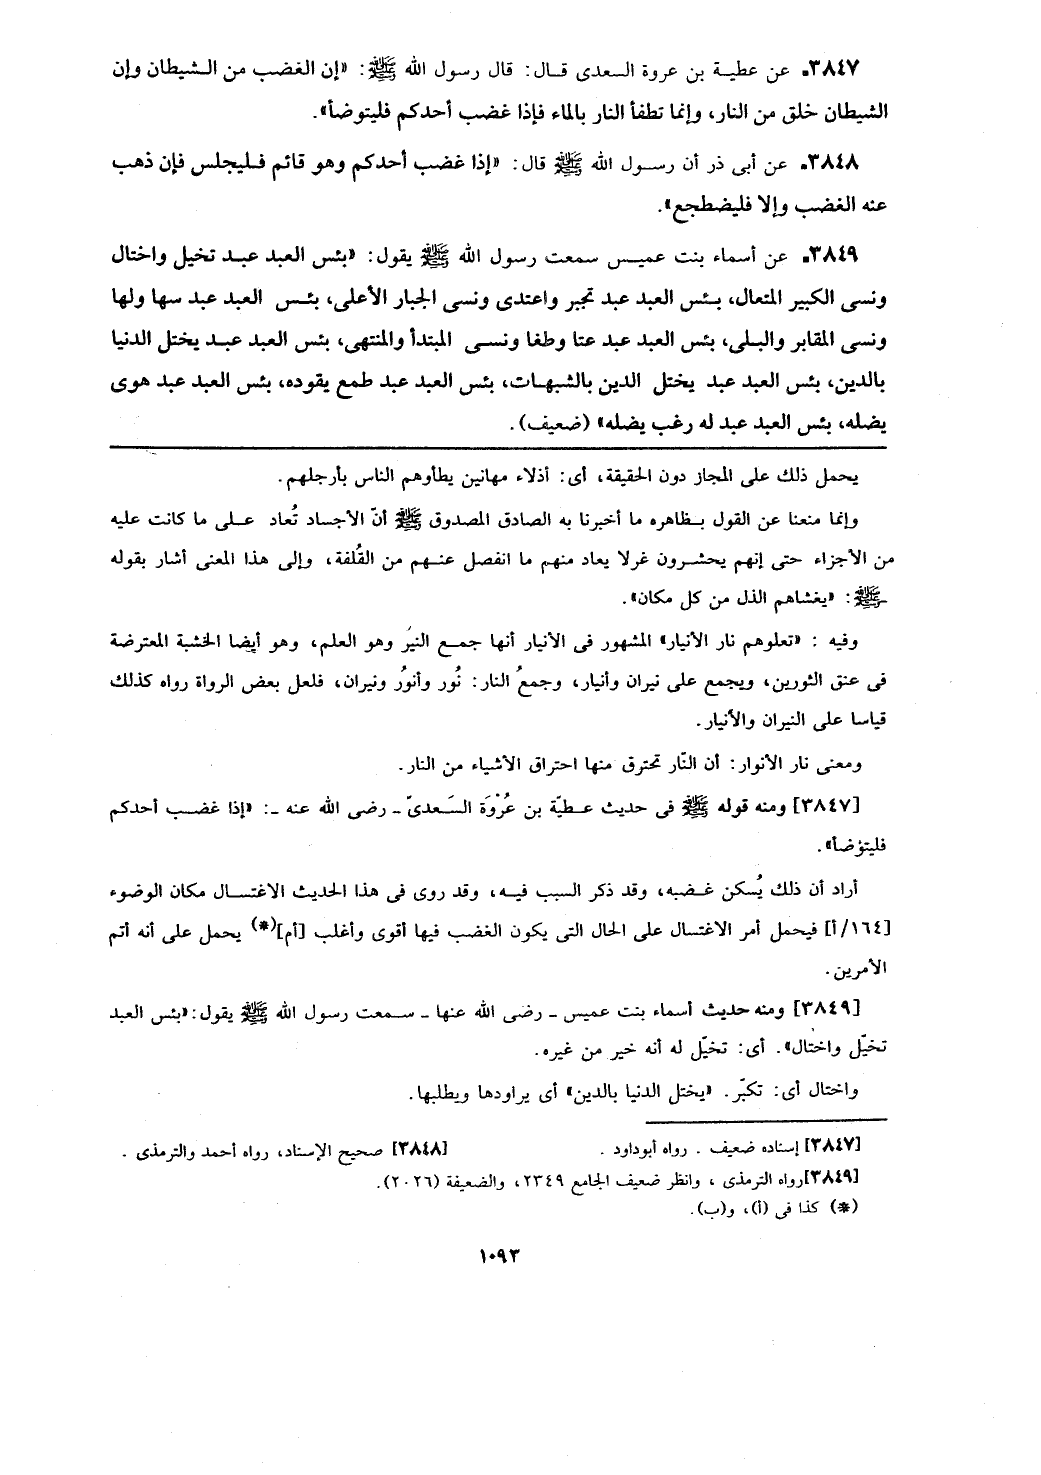 ٣٨٤٧. عن عطية بن عروة السعدى قال: قال رسول الله ﷺ: «إن الغضب من الشيطان وإن
الشيطان خلق من النار، وإنما تطفأ النار بالماء فإذا غضب أحدكم فليتوضأ».
٣٨٤٨. عن أبى ذر أن رسول الله ﷺ قال: «إذا غضب أحدكم وهو قائم فليجلس فإن ذهب
عنه الغضب وإلا فليضطجع».
٣٨٤٩. عن أسماء بنت عميس سمعت رسول الله ﷺ يقول: «بئس العبد عبد تخيل واختال
ونسى الكبير المتعال، بئس العبد عبد تجبر واعتدى ونسى الجبار الأعلى، بئس العبد عبد سها ولها
ونسى المقابر والبلى، بئس العبد عبد عتا وطغا ونسى المبتدأ والمنتهى، بئس العبد عبد يختل الدنيا
بالدين، بئس العبد عبد يختل الدين بالشبهات، بئس العبد عبد طمع يقوده، بئس العبد عبد هوى
يضله، بئس العبد عبد له رغب يضله» (ضعيف).
يحمل ذلك على المجاز دون الحقيقة، أى: أذلاء مهانين يطأوهم الناس بأرجلهم.
وإنما منعنا عن القول بظاهره ما أخبرنا به الصادق المصدوق ﷺ أنّ الأجساد تُعاد على ما كانت عليه
من الأجزاء حتى إنهم يحشرون غرلا يعاد منهم ما انفصل عنهم من القُلفة، وإلى هذا المعنى أشار بقوله
ﷺ: «يغشاهم الذل من كل مكان».
وفيه : «تعلوهم نار الأنيار» المشهور فى الأنيار أنها جمع النيَر وهو العلم، وهو أيضا الخشبة المعترضة
فى عنق الثورين، ويجمع على نيران وأنيار، وجمعُ النار: نُور وأنوُر ونيران، فلعل بعض الرواة رواه كذلك
قياسا على النيران والأنيار.
ومعنى نار الأنوار: أن النّار تحترق منها احتراق الأشياء من النار.
[٣٨٤٧] ومنه قوله ﷺ فى حديث عطيّة بن عُرْوَة السَعدىّ ـ رضى الله عنه ـ: «إذا غضب أحدكم
فليتوضأ».
أراد أن ذلك يُسكن غضبه، وقد ذكر السبب فيه، وقد روى فى هذا الحديث الاغتسال مكان الوضوء
[١٦٤/أ] فيحمل أمر الاغتسال على الحال التى يكون الغضب فيها أقوى وأغلب [أم](*) يحمل على أنه أتم
الأمرين.
[٣٨٤٩] ومنه حديث أسماء بنت عميس ـ رضى الله عنها ـ سمعت رسول الله ﷺ يقول: «بئس العبد
تخيّل واختال». أى: تخيّل له أنه خير من غيره.
واختال أى: تكبّر. «يختل الدنيا بالدين» أى يراودها ويطلبها.
[٣٨٤٧] إسناده ضعيف . رواه أبوداود . [٣٨٤٨] صحيح الإسناد، رواه أحمد والترمذى .
[٣٨٤٩]رواه الترمذى ، وانظر ضعيف الجامع ٢٣٤٩، والضعيفة (٢٠٢٦).
(*) كذا فى (أ)، و(ب).
١٠٩٣